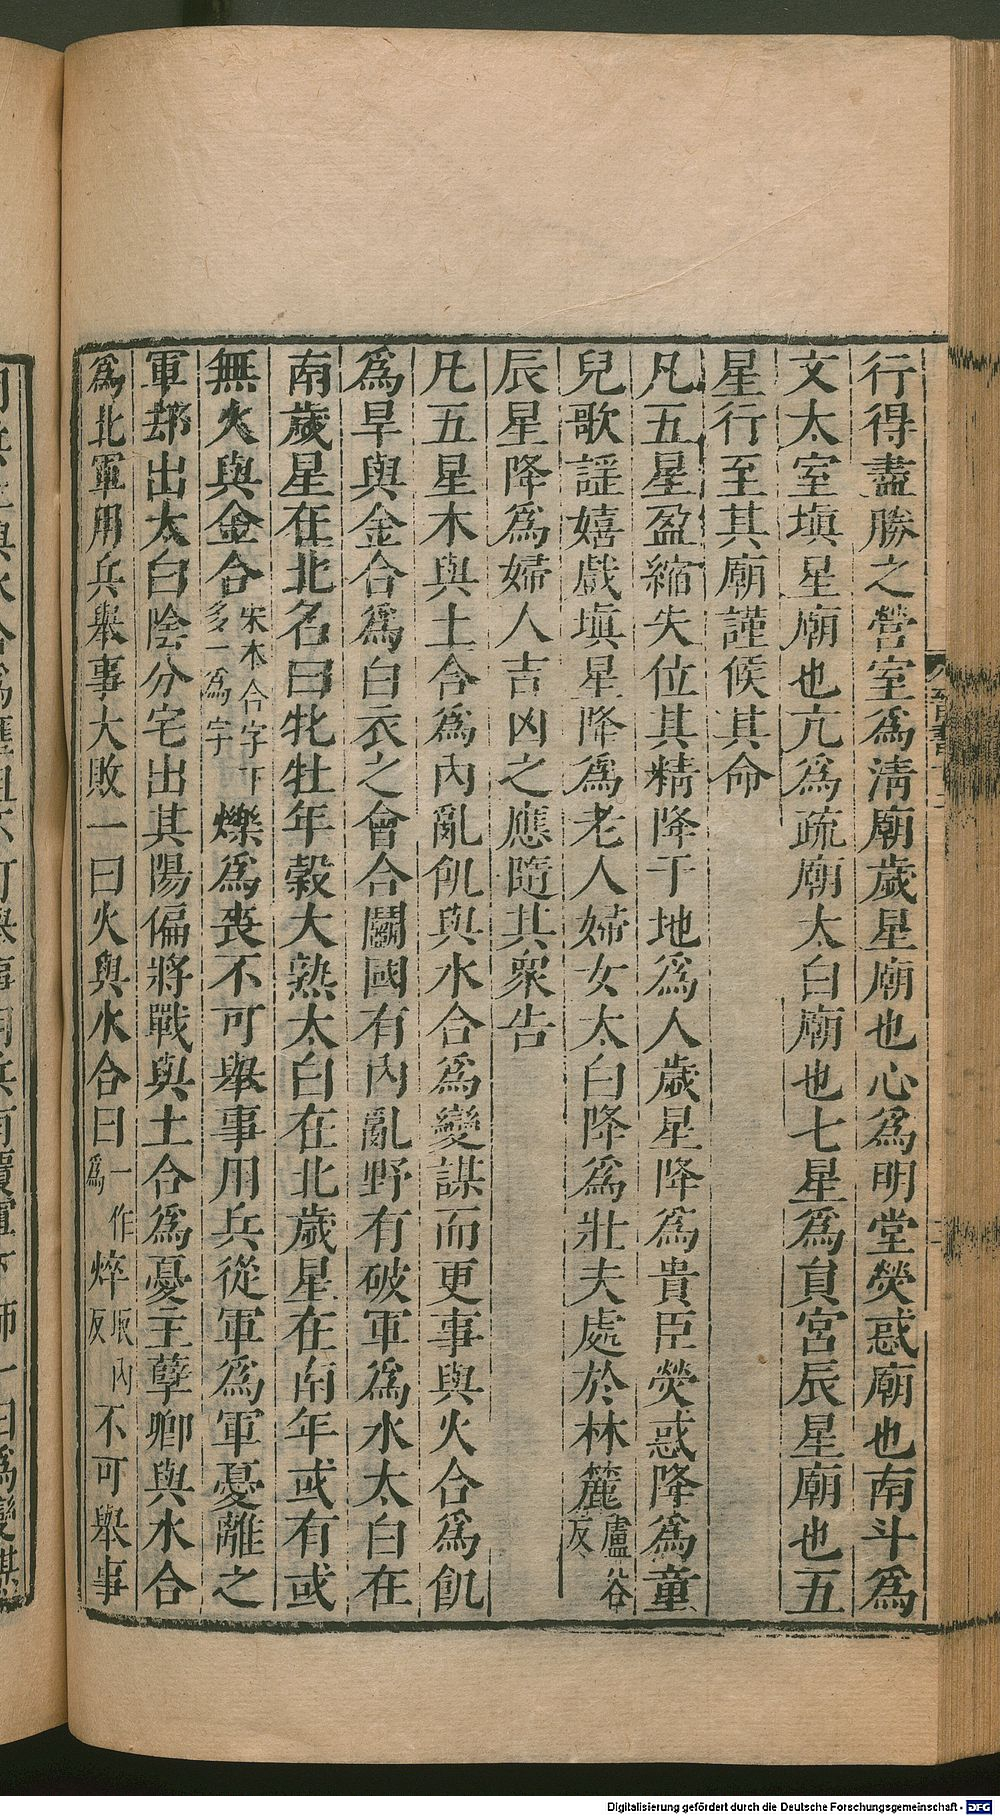 行得盡勝之營室爲淸廟歲星廟也心爲明堂熒惑廟也南斗爲
文太室塡星廟也亢爲疏廟太白廟也七星爲員宮辰星廟也五
星行至其廟謹候其命
凡五星盈縮失位其精降于地爲人歲星降爲貴臣熒惑降爲童
兒歌謡嬉戲塡星降爲老人婦女太白降爲壯夫處於林麓盧谷反
辰星降爲婦人吉凶之應隨其衆告
凡五星木與土合爲內亂飢與水合爲變謀而更事與火合爲飢
爲旱與金合爲白衣之會合鬭國有內亂野有破軍爲水太白在
南歲星在北名曰牝牡年穀大熟太白在北歲星在南年或有或
無火與金合宋本合字下多一爲字爍爲喪不可舉事用兵從軍爲軍憂離之
軍郤出太白陰分宅出其陽偏將戰與土合爲憂主孽卿與水合
爲北軍用兵舉事大敗一曰火與水合曰一作爲焠取內反不可舉事
Digitalisierung gefördert durch die Deutsche Forschungsgemeinschaft - DFG